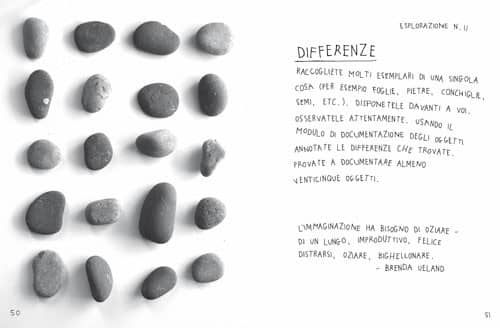 ESPLORAZIONE N. 11
DIFFERENZE
RACCOGLIETE MOLTI ESEMPLARI DI UNA SINGOLA
COSA (PER ESEMPIO FOGLIE, PIETRE, CONCHIGLIE,
SEMI, ETC.). DISPONETELE DAVANTI A VOI.
OSSERVATELE ATTENTAMENTE. USANDO IL
MODULO DI DOCUMENTAZIONE DEGLI OGGETTI
ANNOTATE LE DIFFERENZE CHE TROVATE.
PROVATE A DOCUMENTARE ALMENO
VENTICINQUE OGGETTI.
L'IMMAGINAZIONE HA BISOGNO DI OZIARE -
DI UN LUNGO, IMPRODUTTIVO, FELICE
DISTRARSI, OZIARE, BIGHELLONARE.
- BRENDA UELAND
50
51